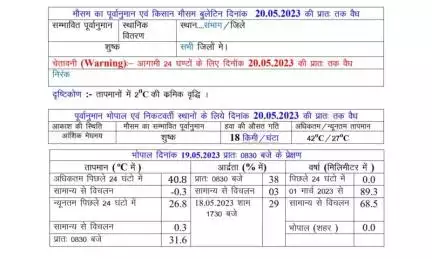 मौसम का पूर्वानुमान एवं किसान मौसम बुलेटिन दिनांक 20.05.2023 की प्रातः तक वैध
सम्भावित पूर्वानुमान स्थानिक वितरण स्थान...संभाग/जिले
शुष्क सभी जिलों में।
चेतावनी (Warning):– आगामी 24 घण्टों के लिए दिनांक 20.05.2023 की प्रातः तक वैध
निरंक
दृष्टिकोण :- तापमानों में 2⁰C की कमिक वृद्धि ।
पूर्वानुमान भोपाल एवं निकटवर्ती स्थानों के लिये दिनांक 20.05.2023 की प्रातः तक वैध
आकाश की स्थिति मौसम का सम्भावित पूर्वानुमान हवा की औसत गति अधिकतम/न्यूनतम तापमान
आंशिक मेघमय शुष्क 18 किमी/घंटा 42⁰C/27⁰C
भोपाल दिनांक 19.05.2023 प्रातः 0830 बजे के प्रेक्षण
तापमान (⁰C में) आर्द्रता (% में) वर्षा (मिलिमीटर में)
अधिकतम पिछले 24 घंटो में 40.8 प्रातः 0830 बजे 38 पिछले 24 घंटो में 0.0
सामान्य से विचलन -0.3 सामान्य से विचलन 03 01 मार्च 2023 से 89.3
न्यूनतम पिछले 24 घंटो में 26.8 18.05.2023 शाम 1730 बजे 29 सामान्य से विचलन 68.5
सामान्य से विचलन 0.3 भोपाल (शहर) 0.0
प्रातः 0830 बजे 31.6